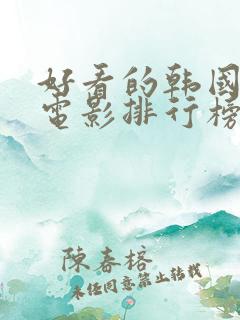 好看的韩國
電影排行榜
陳春榕
未经同意禁止转载